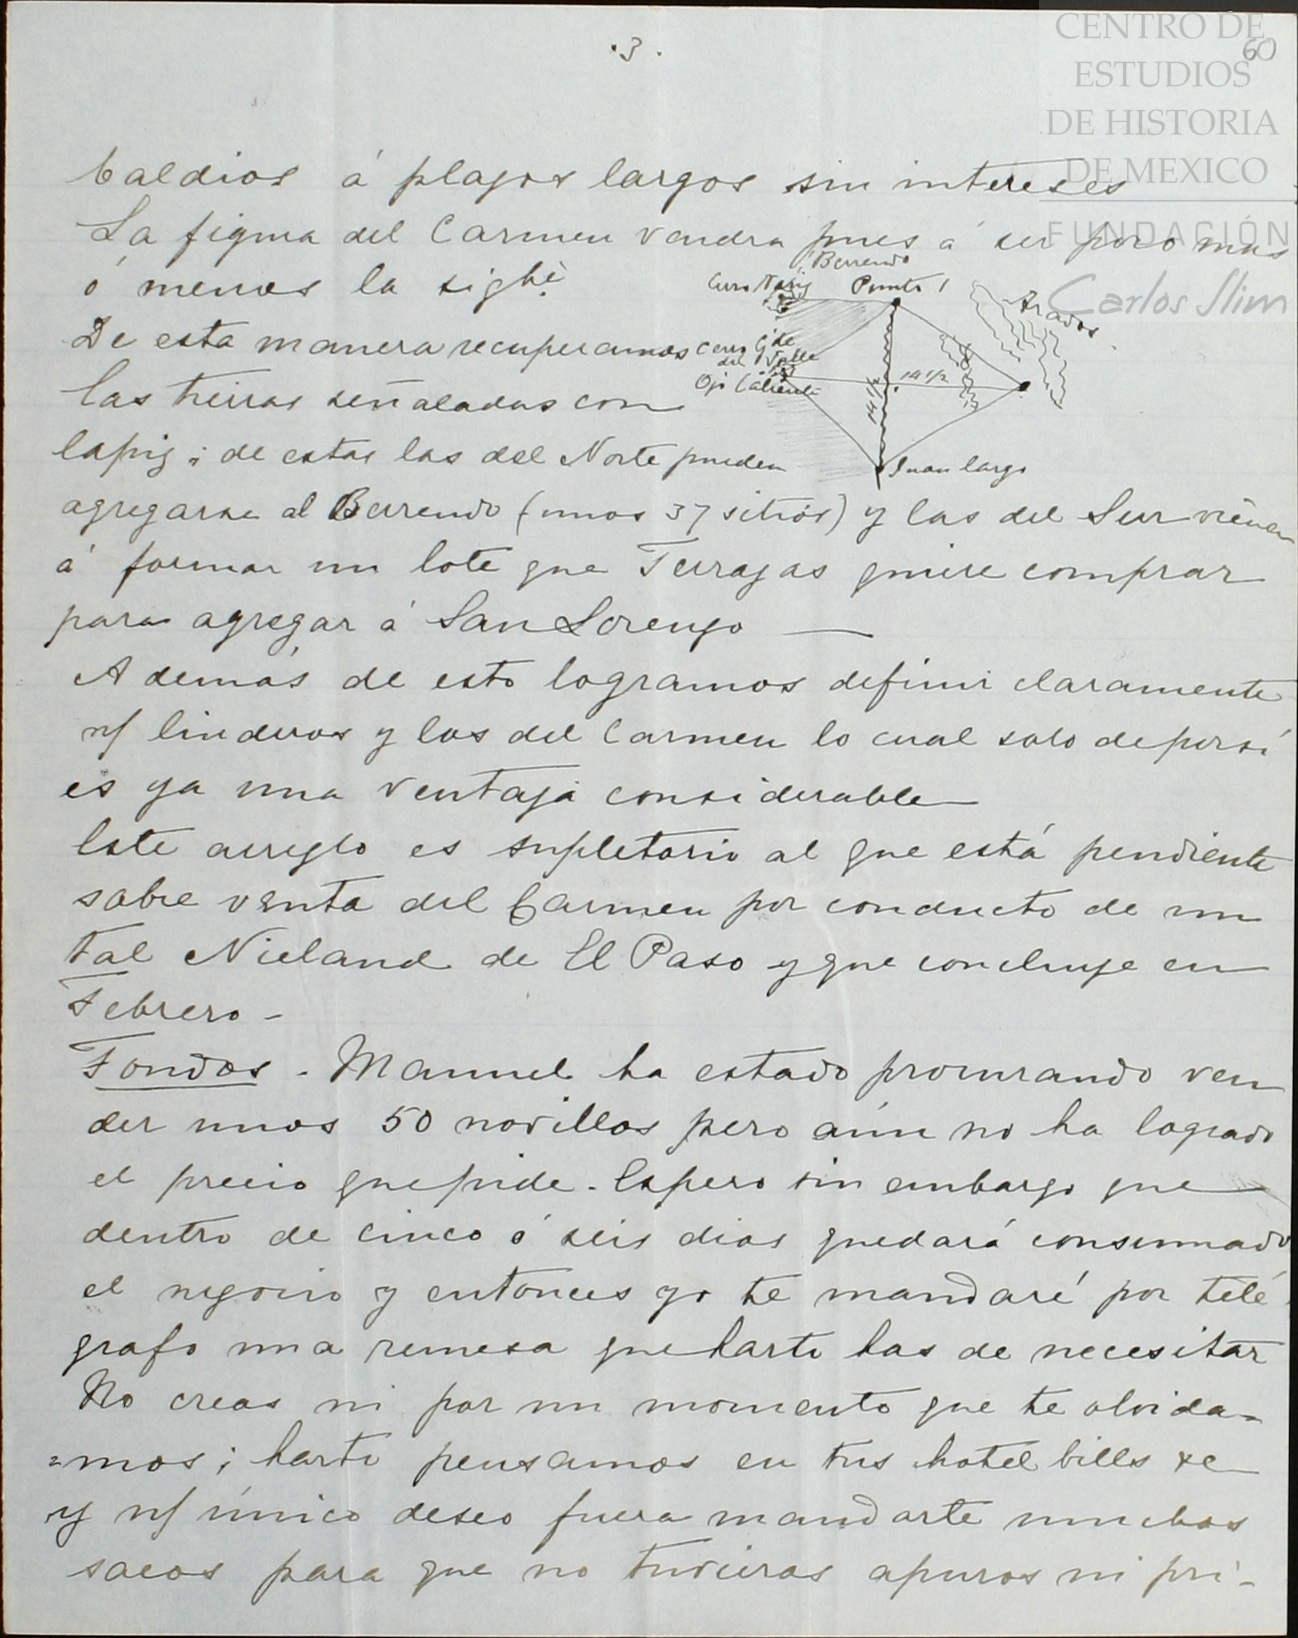 .3.
60
CENTRO DE
ESTUDIOS
DE HISTORIA
DE MEXICO
FUNDACIÓN
Carlos Slim
baldios á plazos largos sin intereses
La figura del Carmen vendra pues á ser poco mas
ó menos la sighê
Berrendo
Punta 1
Arados
De esta manera recuperamos
Cerro
del Valle
Ojo Caliente
14 1/2
14 1/2
las tierras señaladas con
lapiz; de estas las del Norte pueden
Juan largo
agregarse al Berrendo (unos 37 sitios) y las del Sur vienen
á formar un lote que Terrazas quiere comprar
para agregar á San Lorenzo —
Además de esto logramos definir claramente
n/ linderos y los del Carmen lo cual solo de por sí
es ya una ventaja considerable
Este arreglo es supletorio al que está pendiente
sobre venta del Carmen por conducto de un
tal Nieland de El Paso y que concluye en
Febrero -
Fondos - Manuel ha estado procurando ven
der unos 50 novillos pero aún no ha logrado
el precio que pide. Espero sin embargo que
dentro de cinco ó seis dias quedará consumado
el negocio y entonces yo te mandaré por telé
grafo una remesa que harto has de necesitar
No creas ni por un momento que te olvida=
=mos; harto pensamos en tus hotel bills &c
y n/ único deseo fuera mandarte muchos
sacos para que no tuvieras apuros ni pri-